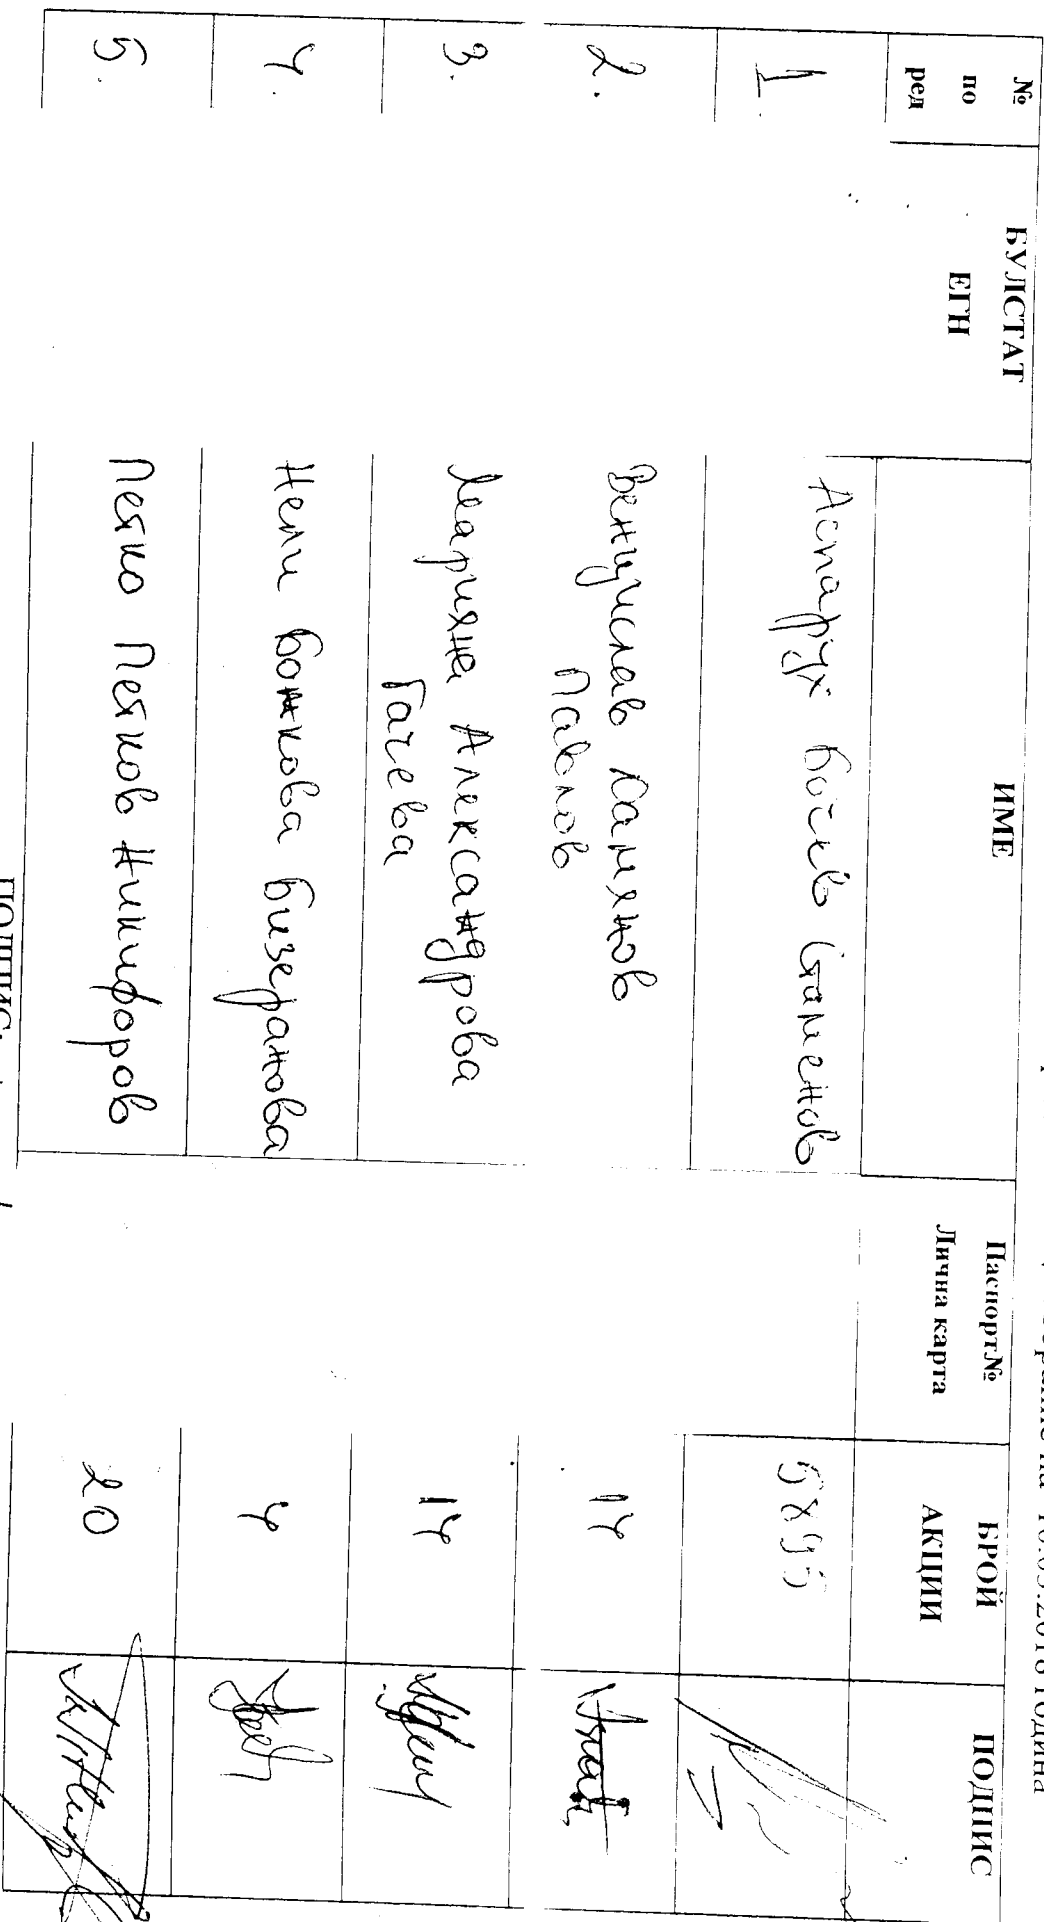 събрание на 10.05.2018 година
№ по ред БУЛСТАТ ЕГН ИМЕ Паспорт№ Лична карта БРОЙ АКЦИИ ПОДПИС
1. Аспарух Боčев Стаменов 5895
2. Венцислав Дамянов Павлов 14
3. Марияна Александрова Гачева 14
4. Нели Божкова Бизеранова 4
5. Петко Петков Никифоров 20
ПОДПИС: